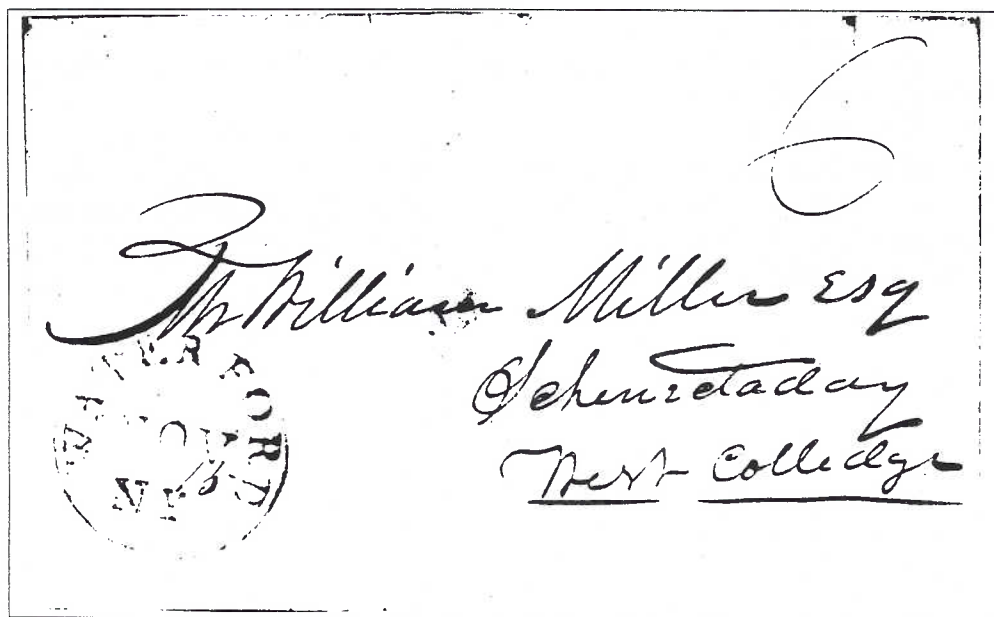 6
Mr William Miller Esq
Schenectaday
West Colledge
WATERFORD